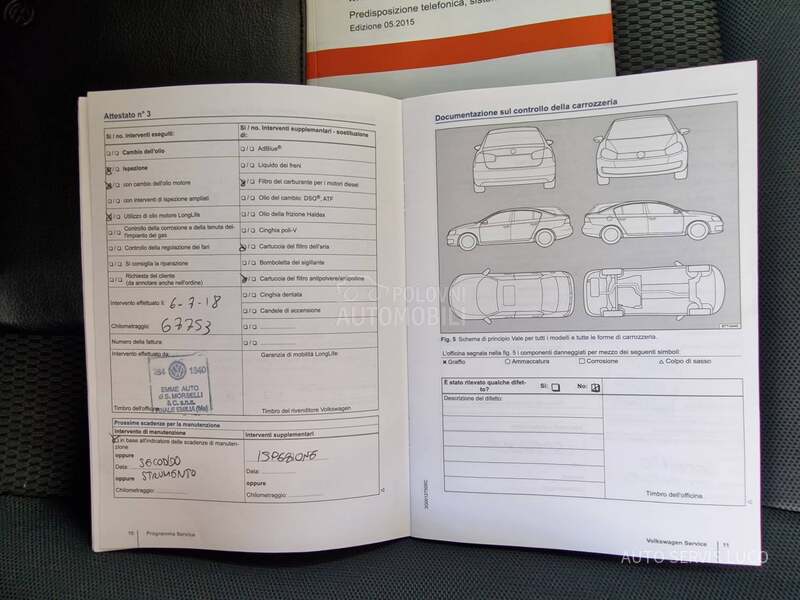 Predisposizione telefonica, sistem
Edizione 05.2015
Attestato n° 3
Sì / no. Interventi eseguiti:
Sì / no. Interventi supplementari - sostituzione di:
/ Cambio dell'olio
/ AdBlue®
/ Ispezione
/ Liquido dei freni
/ con cambio dell'olio motore
/ Filtro del carburante per i motori diesel
/ con interventi di ispezione ampliati
/ Olio del cambio: DSG®, ATF
/ Utilizzo di olio motore LongLife
/ Olio della frizione Haldex
/ Controllo della corrosione e della tenuta dell'impianto del gas
/ Cinghia poli-V
/ Controllo della regolazione dei fari
/ Cartuccia del filtro dell'aria
/ Si consiglia la riparazione
/ Bomboletta del sigillante
/ Richieste del cliente
(da annotare anche nell'ordine)
/ Cartuccia del filtro antipolvere/antipolline
Intervento effettuato il: 6-7-18
/ Cinghia dentata
Chilometraggio: 67753
/ Candele di accensione
Numero della fattura:
Intervento effettuato da:
Garanzia di mobilità LongLife
284 1940
EMME AUTO
di S. MORSELLI
& C. s.n.c.
FINALE EMILIA (Mo)
Timbro dell'officina
Timbro del rivenditore Volkswagen
Prossime scadenze per la manutenzione
Intervento di manutenzione
Interventi supplementari
in base all'indicatore delle scadenze di manutenzione
oppure
Data: SECONDO
oppure STRUMENTO
Chilometraggio:
ISPEZIONE
Data:
oppure
Chilometraggio:
10 Programma Service
Documentazione sul controllo della carrozzeria
Fig. 5 Schema di principio Vale per tutti i modelli e tutte le forme di carrozzeria.
L'officina segnala nella fig. 5 i componenti danneggiati per mezzo dei seguenti simboli:
Graffio Ammaccatura Corrosione Colpo di sasso
È stato rilevato qualche difetto?
Sì: No:
Descrizione del difetto:
Timbro dell'officina
Volkswagen Service 11
POLOVNI
AUTOMOBILI
AUTO SERVIS LUCO